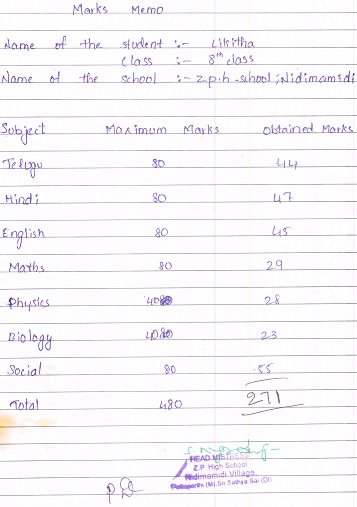 Marks Memo
Name of the student :- Likitha
Class :- 8th class
Name of the school :- z.p.h-school; Nidimamidi
Subject Maximum Marks Obtained Marks
Telugu 80 44
Hindi 80 47
English 80 45
Maths 80 29
Physics 40 28
Biology 40 23
Social 80 55
Total 480 271
HEAD MISTRESS
Z.P High School
Nidimamidi Village,
Puttaparthi (M), Sri Sathya Sai (Dt)